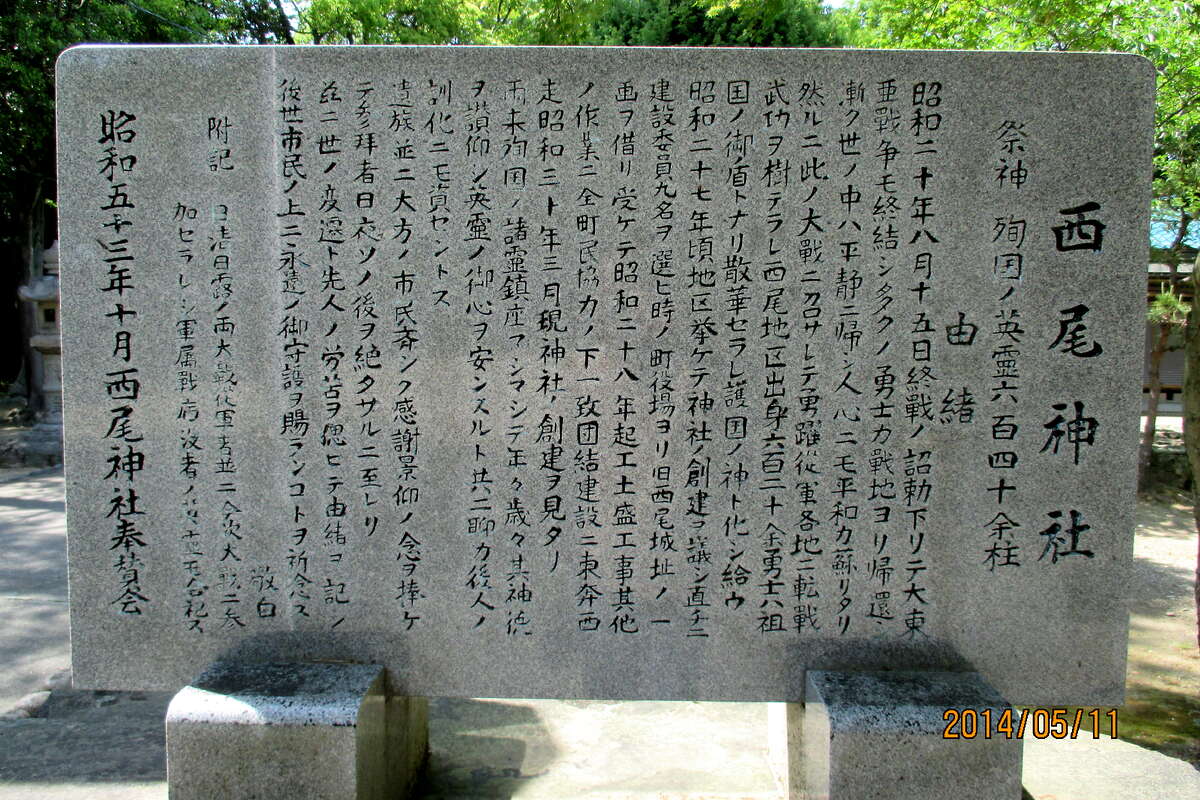 西尾神社
祭神 殉国ノ英霊六百四十余柱
由緒
昭和二十年八月十五日終戰ノ詔勅下リテ大東
亜戰争モ終結シ多クノ勇士カ戰地ヨリ帰還シ
漸ク世ノ中ハ平静ニ帰シ人心ニモ平和カ蘇リタリ
然ルニ此ノ大戰ニ召サレテ勇躍從軍各地ニ転戰
武功ヲ樹テラレ西尾地区出身六百三十余勇士ハ祖
国ノ御盾トナリ散華セラレ護国ノ神ト化シ給ウ
昭和二十七年頃地区挙ケテ神社ノ創建ヲ議シ直チニ
建設委員九名ヲ選ヒ時ノ町役場ヨリ旧西尾城址ノ一
画ヲ借リ受ケテ昭和二十八年起工土盛工事其他
ノ作業ニ全町民協力ノ下一致団結建設ニ東奔西
走昭和三十年三月現神社ノ創建ヲ見タリ
爾来殉国ノ諸霊鎮座マシマシテ年々歳々其神徳
ヲ讃仰シ英霊ノ御心ヲ安ンスルト共ニ聊カ後人ノ
訓化ニモ資セントス
遺族並ニ大方ノ市民斉シク感謝景仰ノ念ヲ捧ケ
テ参拝者日夜ソノ後ヲ絶タサルニ至レリ
茲ニ世ノ変遷ト先人ノ労苦ヲ偲ヒテ由緒ヲ記シ
後世市民ノ上ニ永遠ノ御守護ヲ賜ランコトヲ祈念ス
敬白
附記 日清日露ノ両大戰從軍者並ニ今次大戰ニ参
加セラレシ軍属戰病没者ノ英霊モ合祀ス
昭和五十三年十月西尾神社奉賛会
2014/05/11